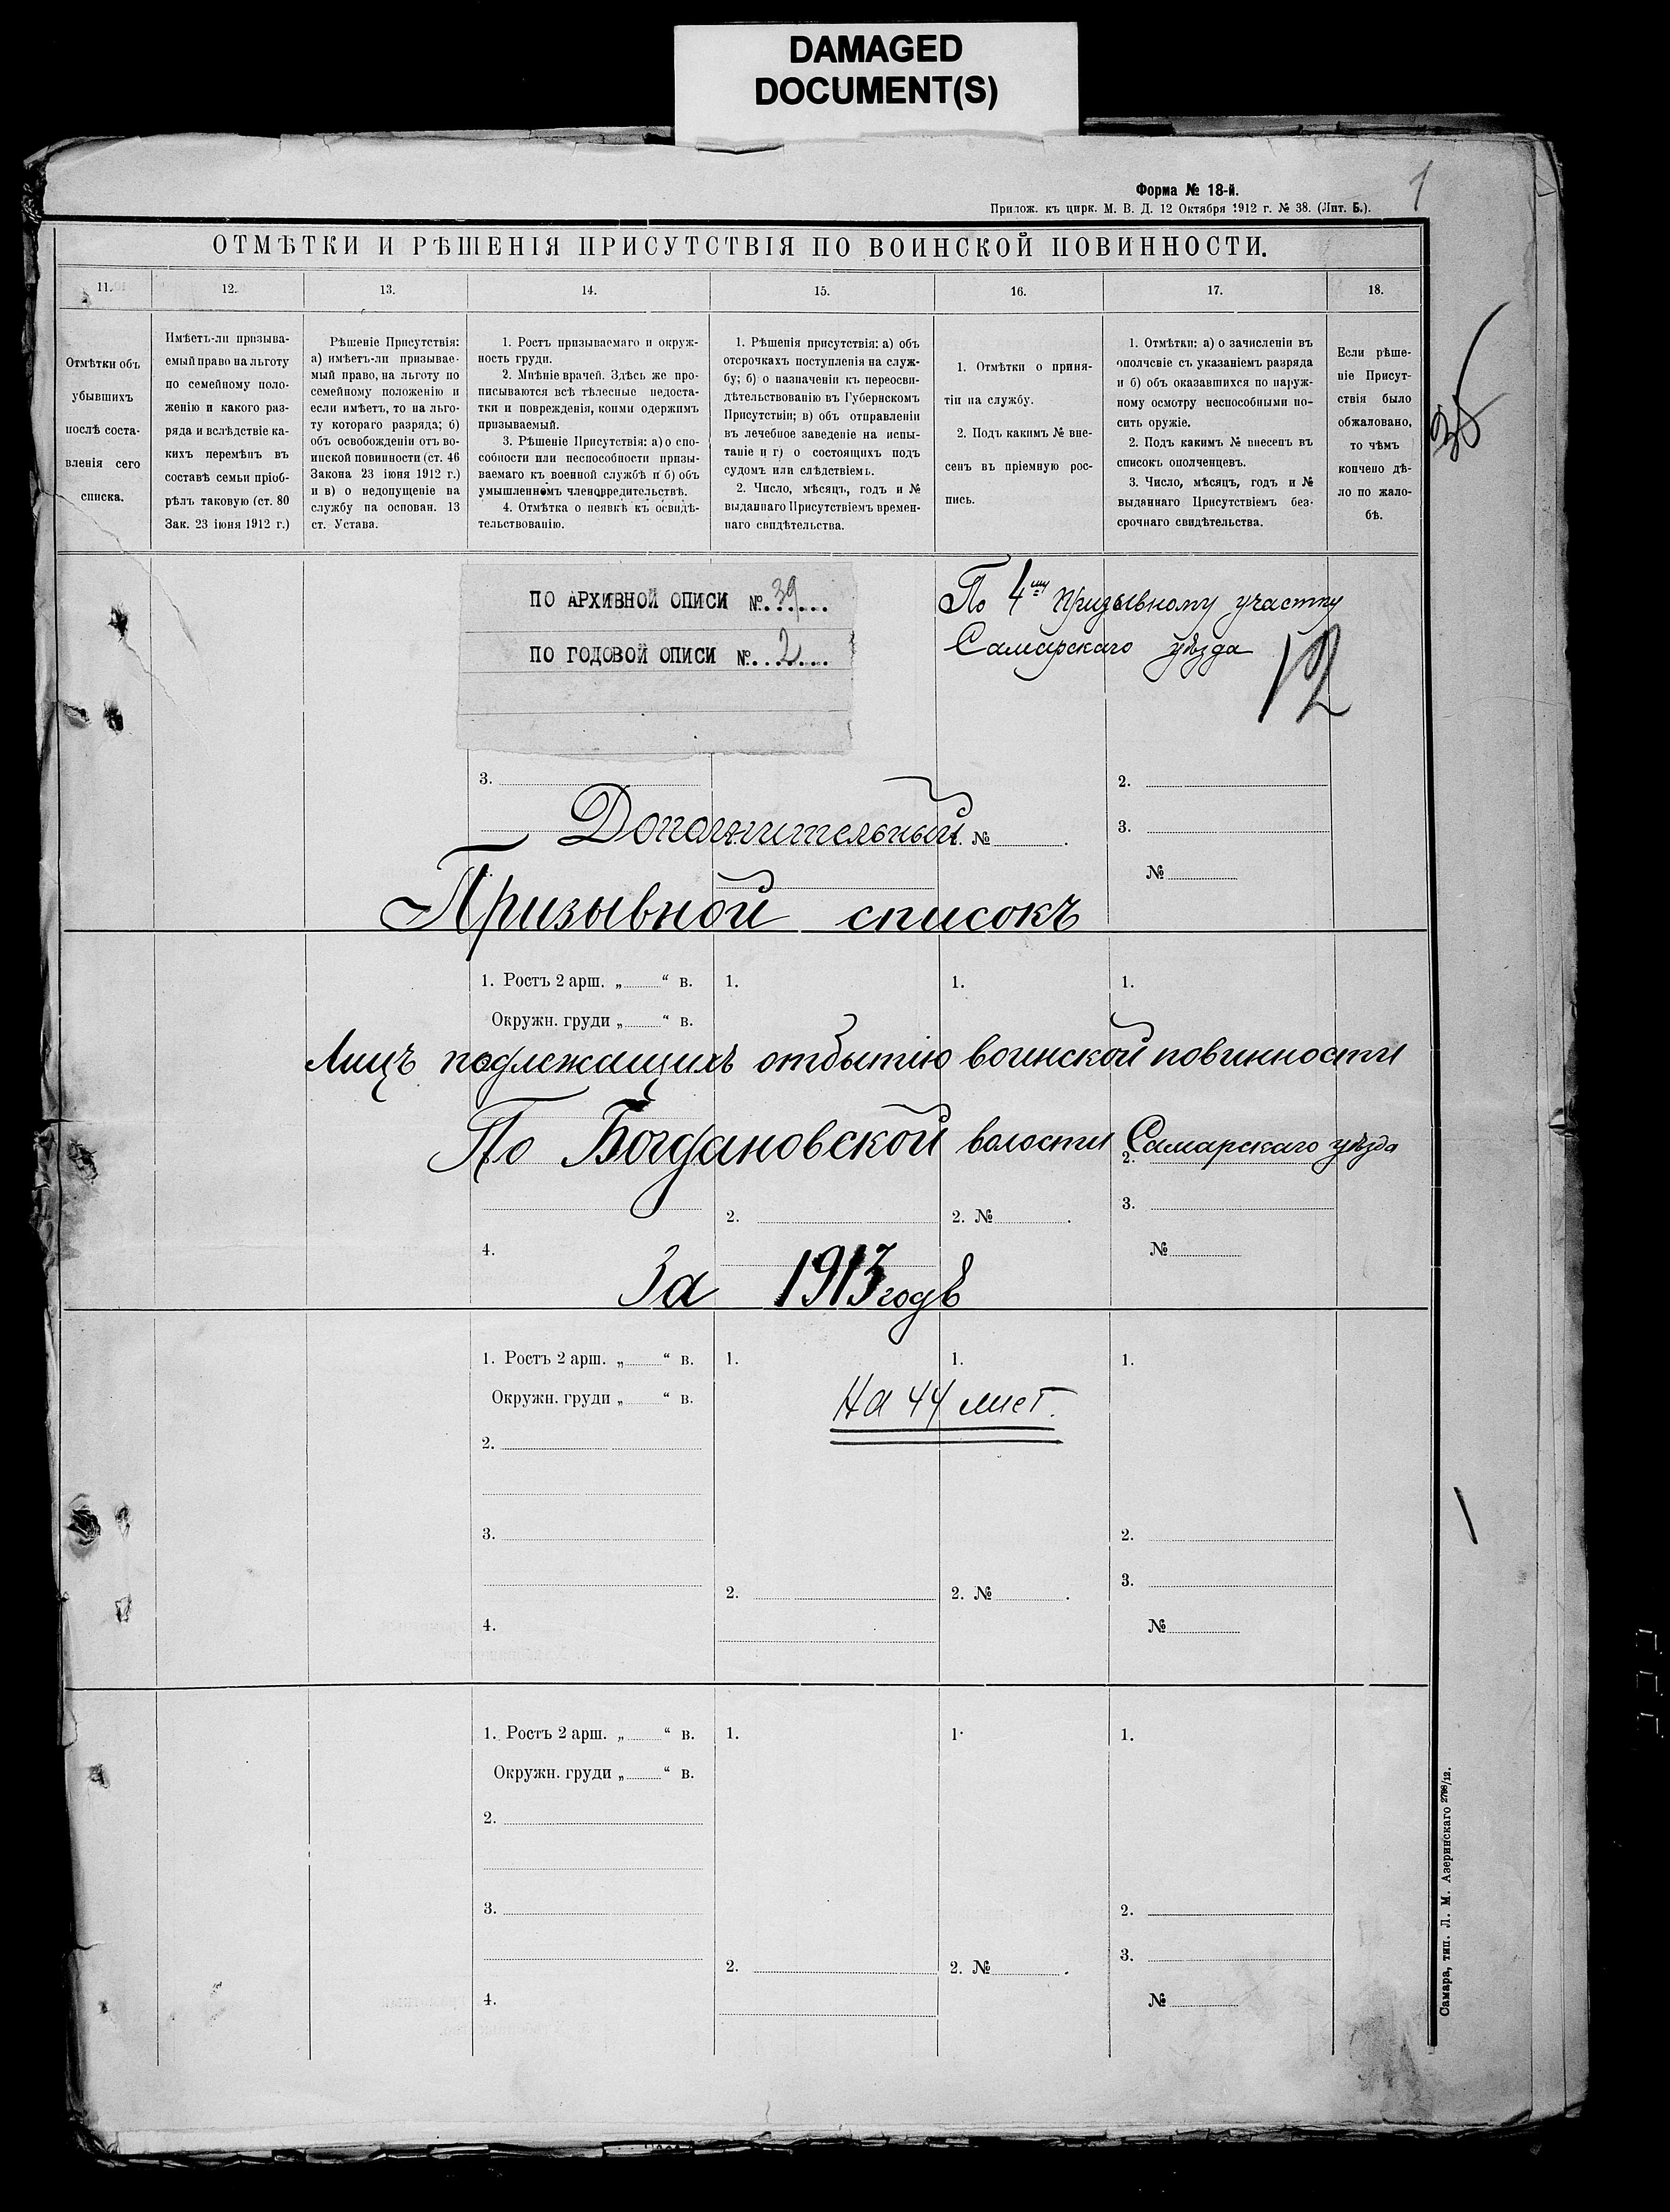 DAMAGED
DOCUMENT(S)
1
Форма № 18-й.
Прилож. къ цирк. М. В. Д. 12 Октября 1912 г. № 38. (Лит. Б.).
ОТМѢТКИ И РѢШЕНІЯ ПРИСУТСТВІЯ ПО ВОИНСКОЙ ПОВИННОСТИ.
11.
12.
13.
14.
15.
16.
17.
18.
Отмѣтки объ
убывшихъ
послѣ соста-
вленія сего
списка.
Имѣетъ-ли призыва-
емый право на льготу
по семейному поло-
женію и какого раз-
ряда и вслѣдствіе ка-
кихъ перемѣнъ въ
составѣ семьи пріоб-
рѣлъ таковую (ст. 80
Зак. 23 іюня 1912 г.)
Рѣшеніе Присутствія:
а) имѣетъ-ли призывае-
мый право, на льготу по
семейному положенію и
если имѣетъ, то на льго-
ту котораго разряда; б)
объ освобожденіи отъ во-
инской повинности (ст. 46
Закона 23 іюня 1912 г.)
и в) о недопущеніе на
службу на основан. 13
ст. Устава.
1. Ростъ призываемаго и окруж-
ность груди.
2. Мнѣніе врачей. Здѣсь же про-
писываются всѣ тѣлесные недоста-
тки и поврежденія, коими одержимъ
призываемый.
3. Рѣшеніе Присутствія: а) о спо-
собности или неспособности призы-
ваемаго къ военной службѣ и б) объ
умышленномъ членовредительствѣ.
4. Отмѣтка о неявкѣ къ освидѣ-
тельствованію.
1. Рѣшенія присутствія: а) объ
отсрочкахъ поступленія на служ-
бу; б) о назначеніи къ переосви-
дѣтельствованію въ Губернскомъ
Присутствіи; в) объ отправленіи
въ лечебное заведеніе на испы-
таніе и г) о состоящихъ подъ
судомъ или слѣдствіемъ.
2. Число, мѣсяцъ, годъ и №
выданнаго Присутствіемъ времен-
наго свидѣтельства.
1. Отмѣтки о приня-
тіи на службу.
2. Подъ какимъ № вне-
сенъ въ пріемную рос-
пись.
1. Отмѣтки: а) о зачисленіи въ
ополченіе съ указаніемъ разряда
и б) объ оказавшихся по наруж-
ному осмотру неспособными но-
сить оружіе.
2. Подъ какимъ № внесенъ въ
списокъ ополченцевъ.
3. Число, мѣсяцъ, годъ и №
выданнаго Присутствіемъ без-
срочнаго свидѣтельства.
Если рѣше-
ніе Присут-
ствія было
обжаловано,
то чѣмъ
кончено дѣ-
ло по жало-
бѣ.
35
ПО АРХИВНОЙ ОПИСИ №. 39
ПО ГОДОВОЙ ОПИСИ №. 2
По 4му призывному участку
Самарскаго уѣзда
12
3.
2.
Дополнительный
№
3.
№
Призывной списокъ
1. Ростъ 2 арш. „ “ в.
1.
1.
1.
Окружн. груди „ “ в.
Лицъ подлежащихъ отбытію воинской повинности
По Богдановской волости Самарскаго уѣзда
2.
3.
2.
2. №
4.
№
За 1913 годъ
1. Ростъ 2 арш. „ “ в.
1.
1.
1.
Окружн. груди „ “ в.
На 44 лист.
2.
3.
2.
3.
2.
2. №
4.
№
1. Ростъ 2 арш. „ “ в.
1.
1.
1.
Окружн. груди „ “ в.
2.
3.
2.
3.
2.
2. №
4.
№
Самара, тип. Л. М. Азеринскаго 2798/12.